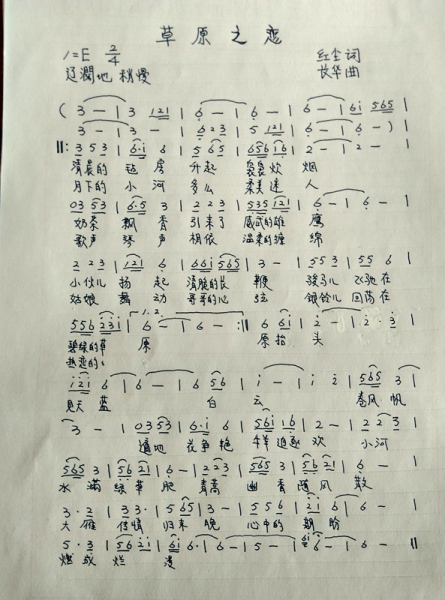 草原之恋
1=E 2/4 红尘词
辽阔地 稍慢 牧华曲
( 3 — | 3 121 | 6 — | 6 — | 6 — | 6i 565 |
3 — | 3 — | 6 23 | 5 121 | 6 — | 6 — )
||: 3 53 | 6·i 6 | 5 65 | 656 i6 | 2 — | 2 — |
清晨的 毡房 升起 袅袅炊烟
月下的小河 多么 柔美迷人
03 53 | 6·5 3 | 2 23 | 535 121 | 6 — | 6 — |
奶茶飘香 引来了 威武的雄鹰
歌声琴声 相依 温柔的缠绵
2 23 | 121 6 | 66i 565 | 3 — | 553 | 55 6 |
小伙儿扬起 清脆的长鞭 骏马儿飞驰在
姑娘舞动 哥哥的心弦
556 23i | 6 — | 6 — :|| 6 6i | 2 — | 2· 3 |
碧绿的草原 原抬头
热恋的
i 2i 6 | 6 — | 6 56 | i — | i 2 | 565 3 |
见天蓝 白云 春风帆
3 — | 03 53 | 6·i 6 | 56i i6 | 2 — | 2 23 |
遍地花争艳 追逐欢 小河
565 3 | 56 21 | 6 — | 2 23 | 565 3 | 56 21 | 6 — |
水满绿草肥 青蒿幽香随风散
3·2 | 33· | 5·65 | 3 — | 556 | 2i 6 | 6 — |
大雁传情归来晚 心中的期盼
5·3 | 56 2i | 6i 6· | 6 — | 5 — | 6 — | 6 — ||
燃成烂漫